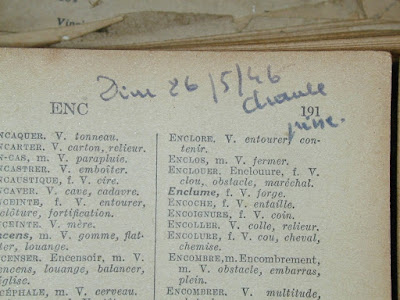 Dim 26/5/46
Chaude
pisse.
ENC
191
NCAQUER. V. tonneau.
NCARTER. V. carton, relieur.
N-CAS, m. V. parapluie.
NCASTRER. V. emboîter.
NCAUSTIQUE, f. V. cire.
NCAVER. V. cave, cadavre.
NCEINTE, f. V. entourer,
clôture, fortification.
NCEINTE. V. mère.
ncens, m. V. gomme, flat-
ter, louange.
NCENSER. Encensoir, m. V.
encens, louange, balancer,
église.
NCÉPHALE, m. V. cerveau.
ENCLORE. V. entourer, con-
tenir.
ENCLOS, m. V. fermer.
ENCLOUER. Enclouure, f. V.
clou, obstacle, maréchal.
Enclume, f. V. forge.
ENCOCHE, f. V. entaille.
ENCOIGNURE, f. V. coin.
ENCOLLER. V. colle, relieur.
ENCOLURE, f. V. cou, cheval,
chemise.
ENCOMBRE, m. Encombrement,
m. V. obstacle, embarras,
plein.
ENCOMBRER. V. multitude,